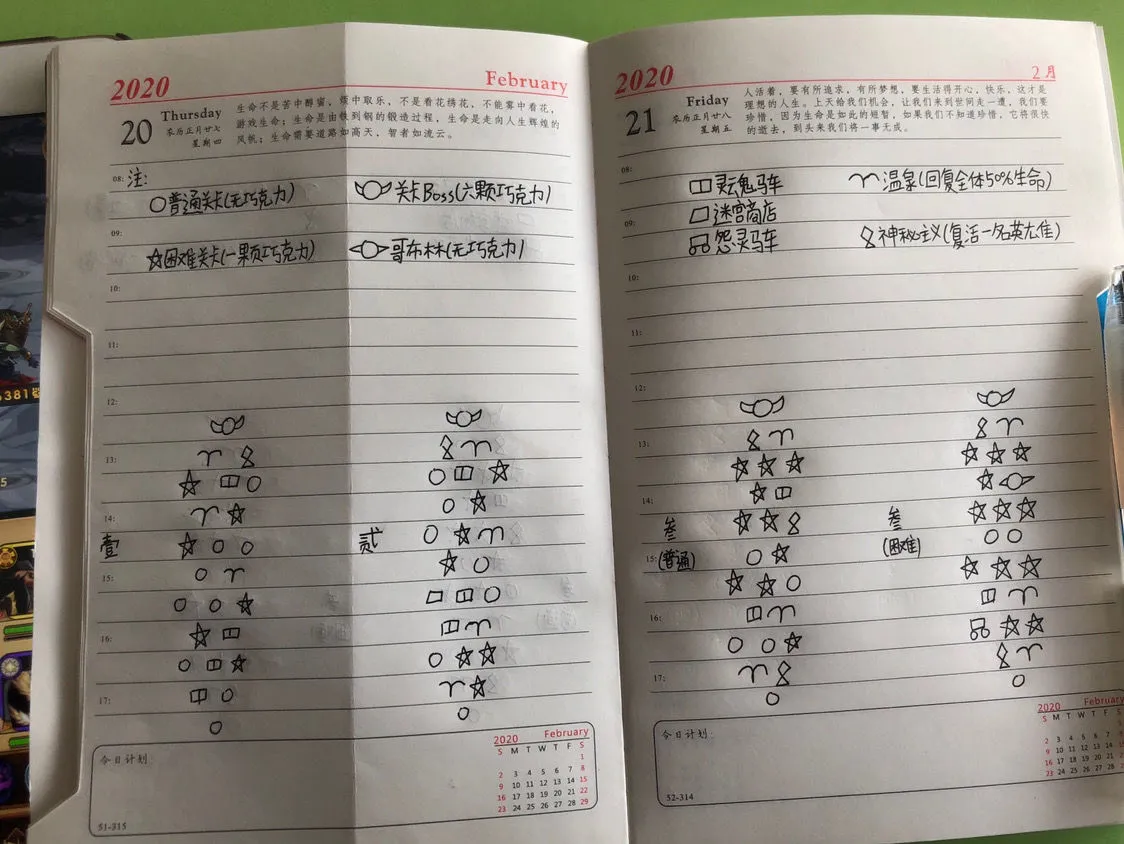 2020 February
20 Thursday
农历正月廿七
星期四
生命不是苦中醇蜜，烦中取乐，不是看花绣花，不能雾中看花，
游戏生命；生命是由铁到钢的锻造过程，生命是走向人生辉煌的
风帆；生命需要道路如高天，智者如流云。
08: 注:
○普通关卡(无巧克力)
关卡Boss(六颗巧克力)
09:
☆困难关卡(一颗巧克力)
哥布林(无巧克力)
10:
11:
12:
13:
14:
壹
贰
15:
16:
17:
今日计划:
2020 February
S M T W T F S
1
2 3 4 5 6 7 8
9 10 11 12 13 14 15
16 17 18 19 20 21 22
23 24 25 26 27 28 29
51-315
2020 2月
21 Friday
农历正月廿八
星期五
人活着，要有所追求，有所梦想，要生活得开心，快乐，这才是
理想的人生。上天给我们机会，让我们来到世间走一遭，我们要
珍惜，因为生命是如此的短暂，如果我们不知道珍惜，它将很快
的逝去，到头来我们将一事无成。
08:
灵魂马车
温泉(回复全体50%生命)
迷宫商店
09:
怨灵马车
神秘主义(复活一名英雄)
10:
11:
12:
13:
14:
叁
叁
15: (普通)
(困难)
16:
17:
今日计划:
2020 February
S M T W T F
2 3 4 5 6 7
9 10 11 12 13 14
16 17 18 19 20 21
23 24 25 26 27 28
52-314